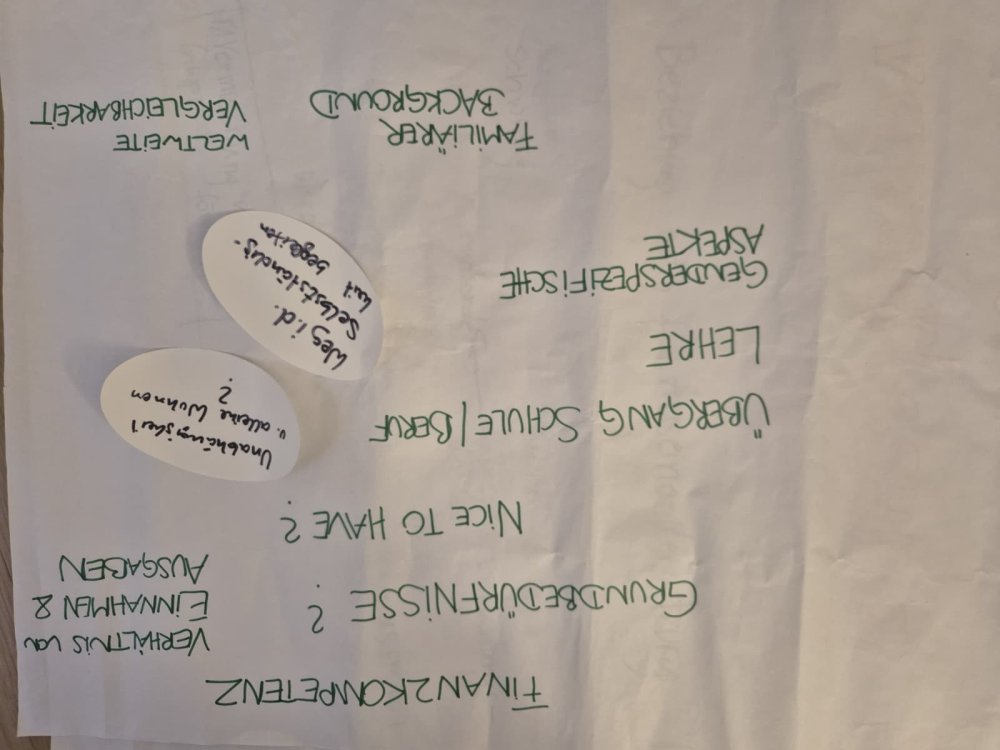 FINANZKOMPETENZ
GRUNDBEDÜRFNISSE ?
VERHÄLTNIS VON
EINNAHMEN &
AUSGABEN
NICE TO HAVE ?
ÜBERGANG SCHULE / BERUF
Unabhängigkeit
u. alleine Wohnen
?
LEHRE
Weg i.d.
Selbstständig-
keit begleiten
GENDERSPEZIFISCHE
ASPEKTE
FAMILIÄRER
BACKGROUND
WELTWEITE
VERGLEICHBARKEIT